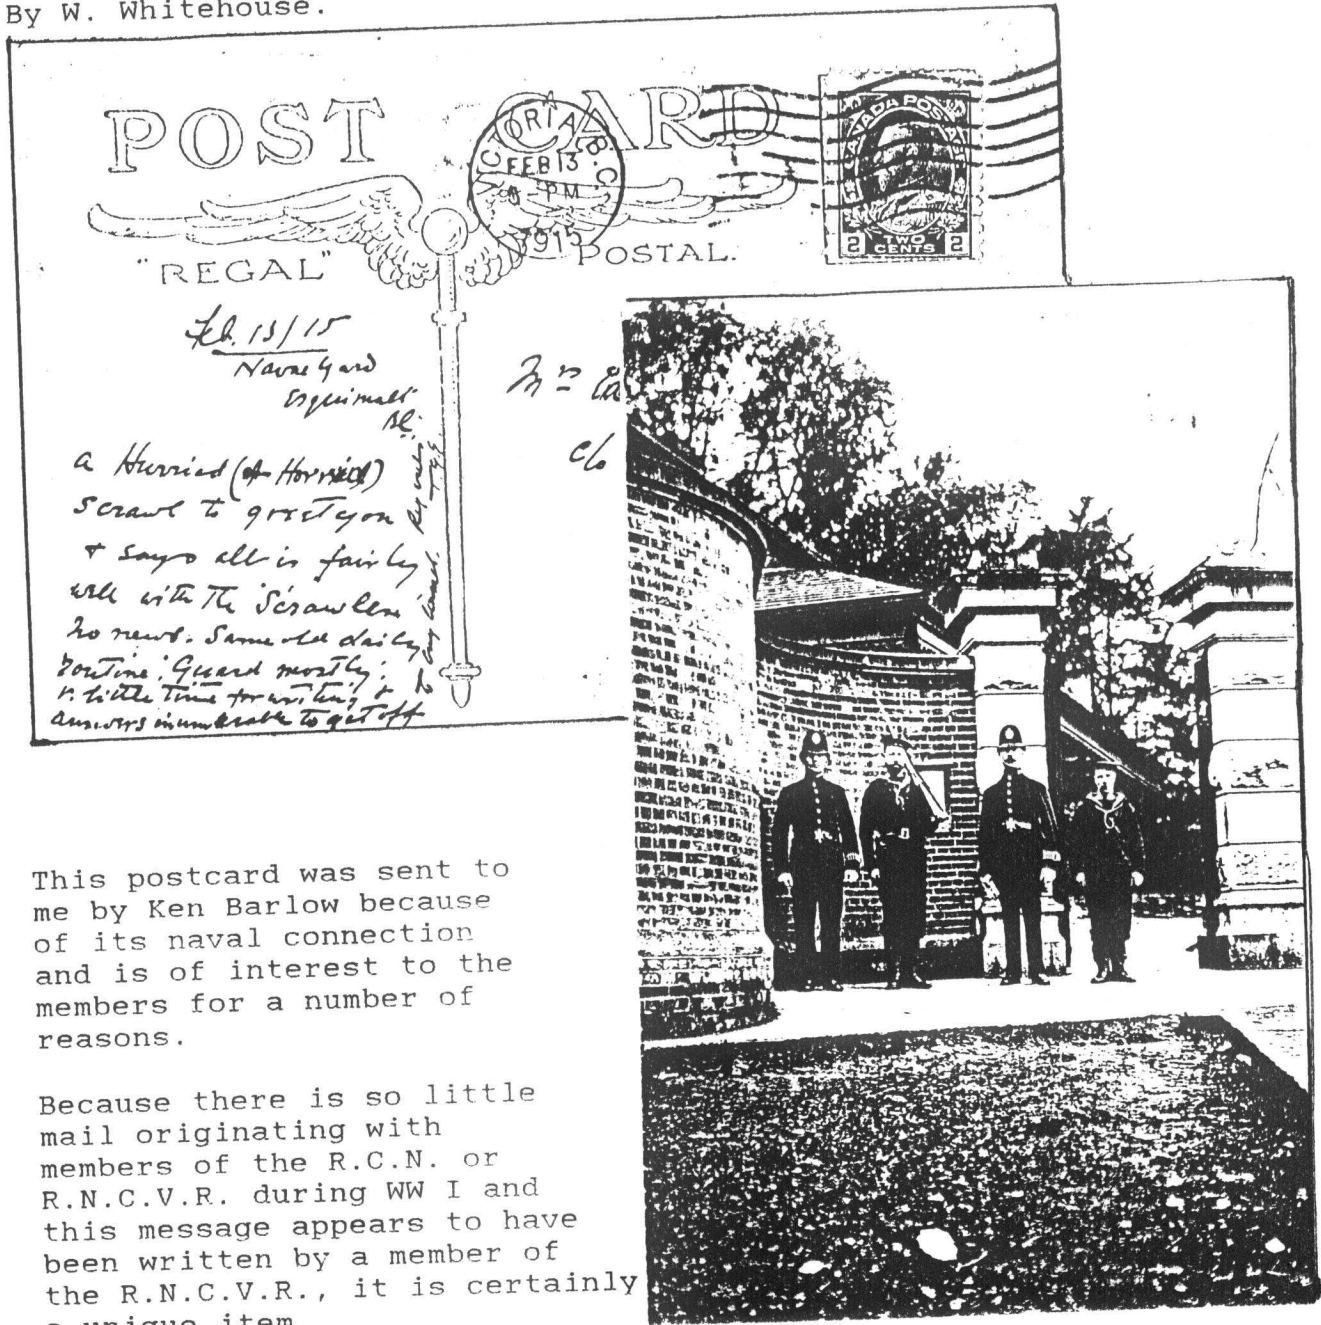 By W. Whitehouse.
POST CARD
VICTORIA B.C.
FEB 13
PM
1915
CANADA POSTAGE
2 TWO CENTS 2
"REGAL" POSTAL.
Feb. 13/15
Naval Yard
Esquimalt
BC.
Mrs
c/o
a Hurried (& Horrid)
scrawl to greet you
& says all is fairly
well with the Scrawler
No news. Same old daily
routine. Guard mostly;
& little time for writing &
answers inumerable to get off
This postcard was sent to
me by Ken Barlow because
of its naval connection
and is of interest to the
members for a number of
reasons.
Because there is so little
mail originating with
members of the R.C.N. or
R.N.C.V.R. during WW I and
this message appears to have
been written by a member of
the R.N.C.V.R., it is certainly
a unique item